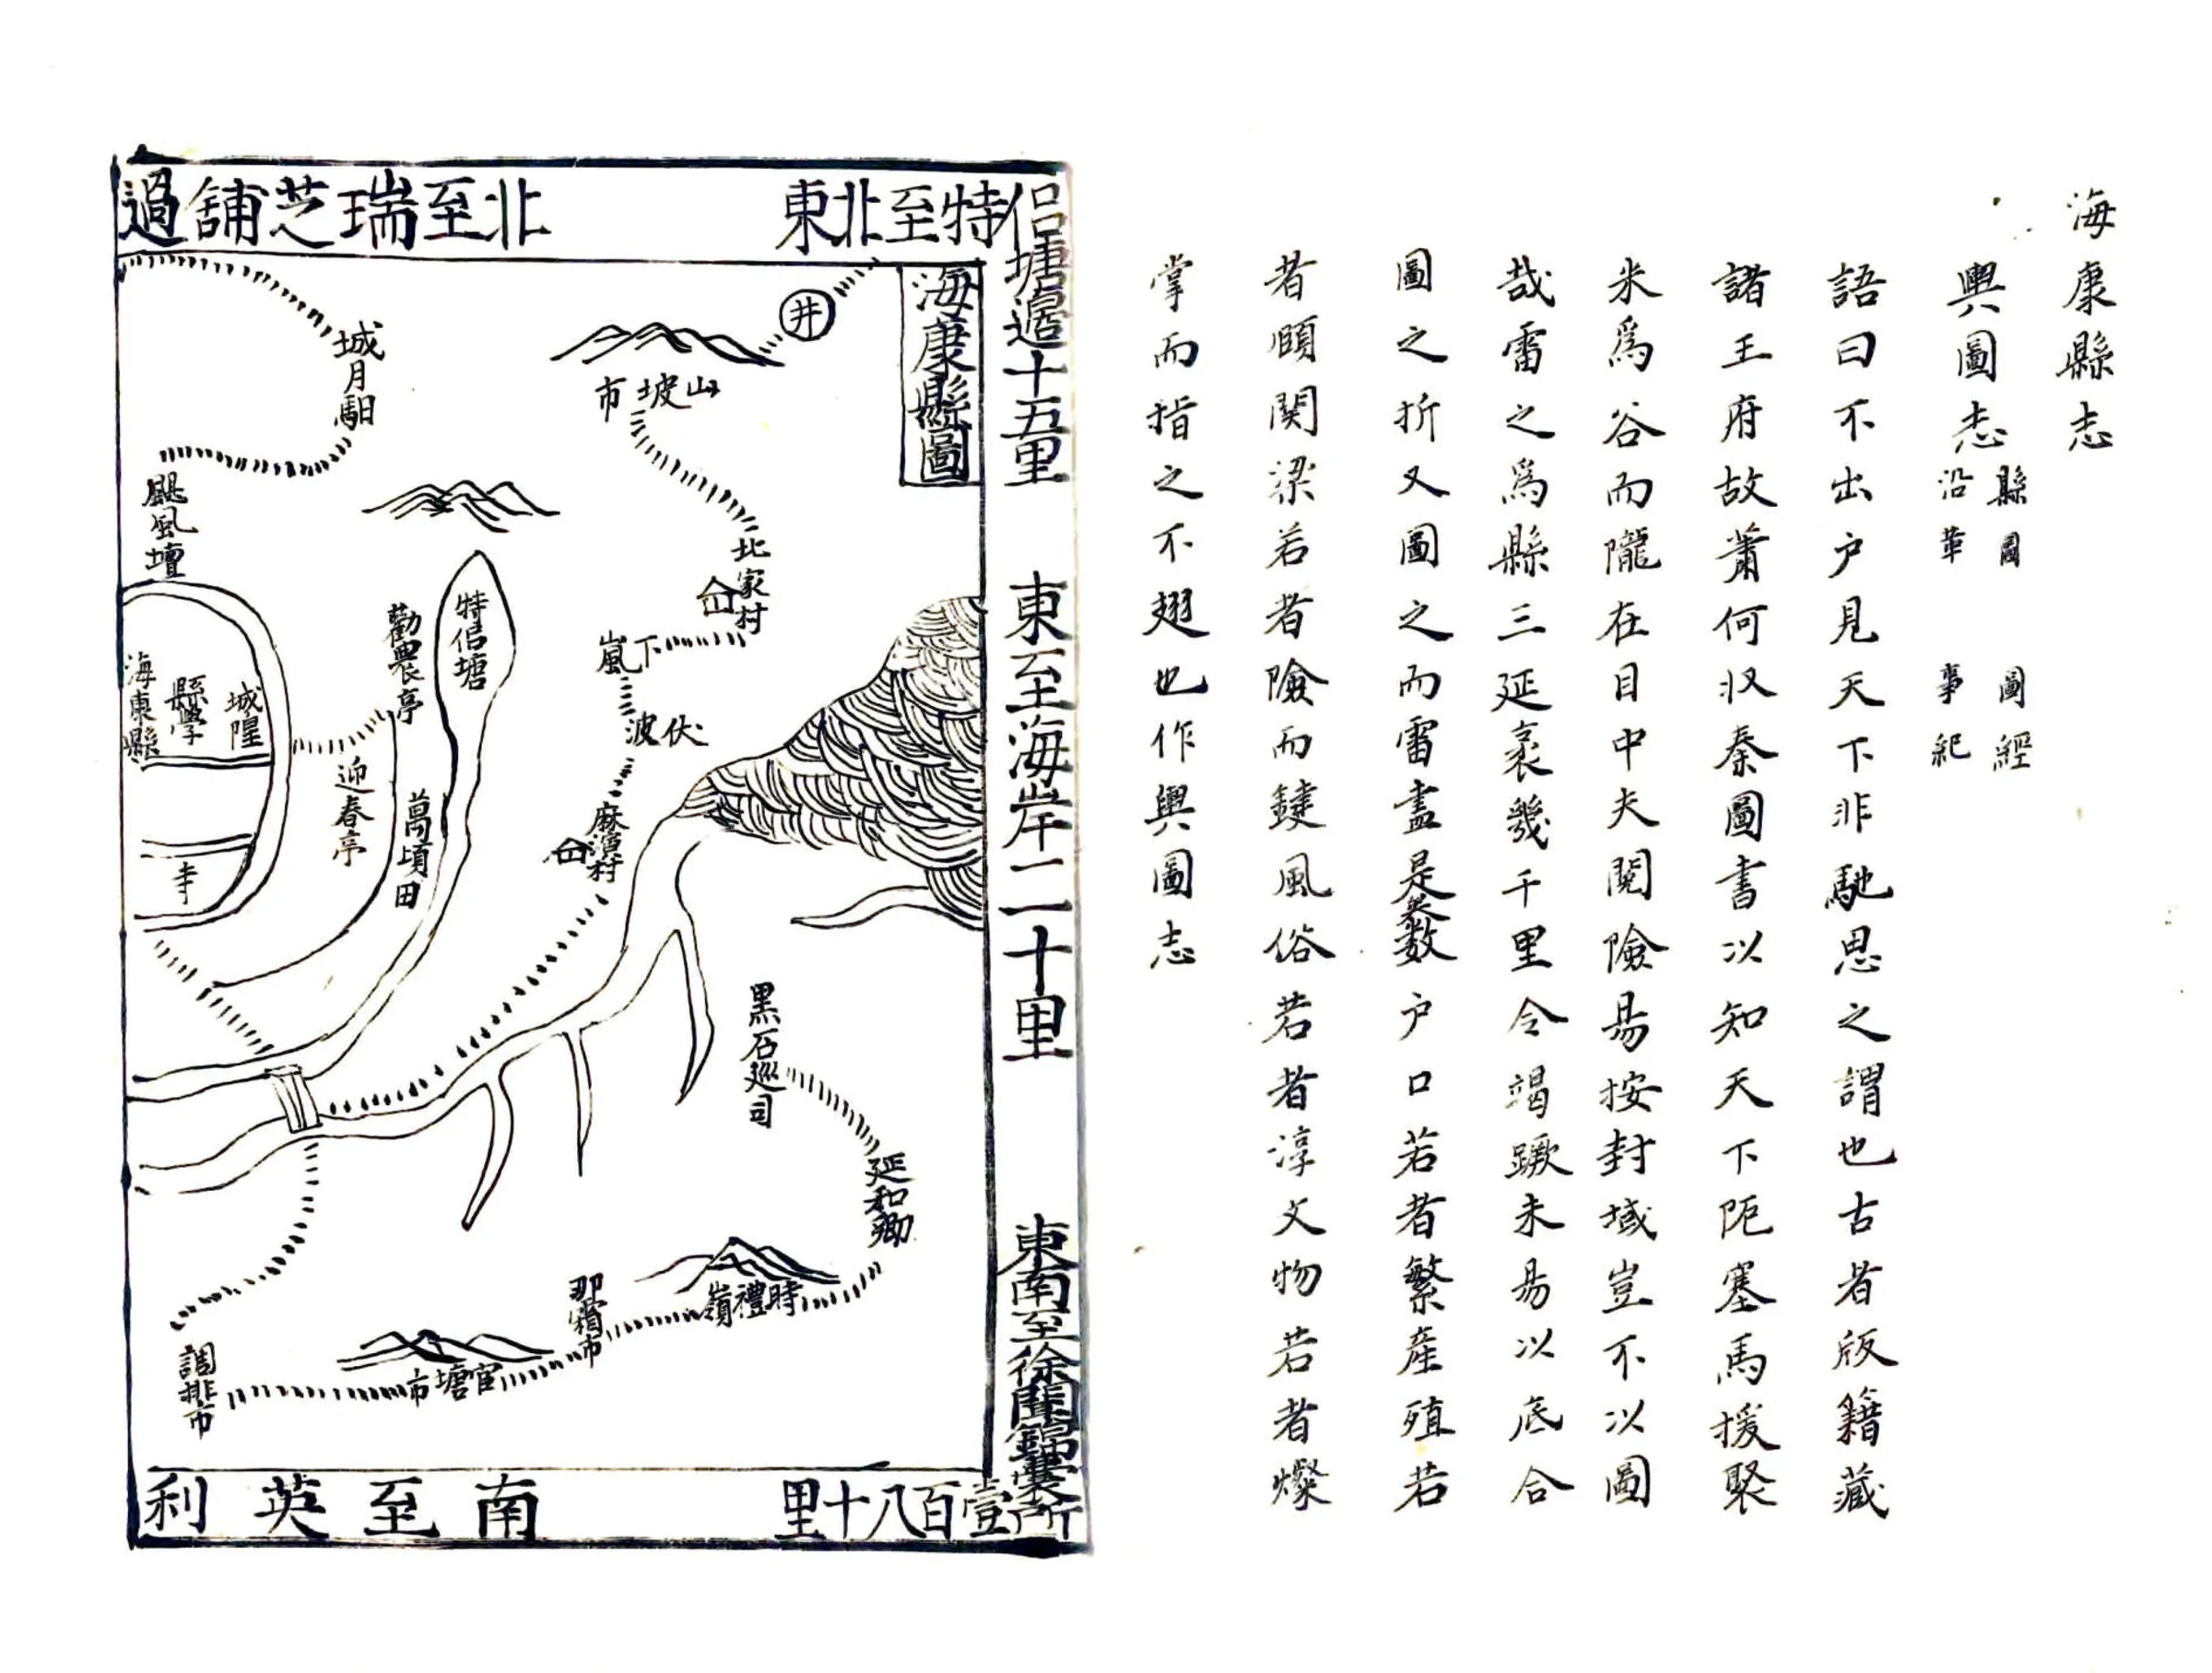 海康縣志
輿圖志
縣圖 圖經
沿革 事紀
語曰不出户見天下非馳思之謂也古者版籍藏
諸王府故蕭何収秦圖書以知天下阨塞馬援聚
米爲谷而隴在目中夫閱險易按封域豈不以圖
哉雷之爲縣三延袤幾千里令竭蹶未易以底合
圖之折又圖之而雷盡是矣数户口若者繁産殖若
者頤関梁若者險而鍵風俗若者淳文物若者燦
掌而指之不翅也作輿圖志
海康縣圖
東北至特侣塘邉十五里
東至海岸二十里
東南至徐聞錦囊所壹百八十里
北至瑞芝舖過
南至英利
井
山坡市
城月馹
颶風壇
北家村
下嵐
伏波
麻濱村
特侣塘
勸農亭
迎春亭
萬頃田
城隍
縣學
海康縣
寺
黒石廵司
延和鄉
時禮嶺
那霜市
官塘市
調排市